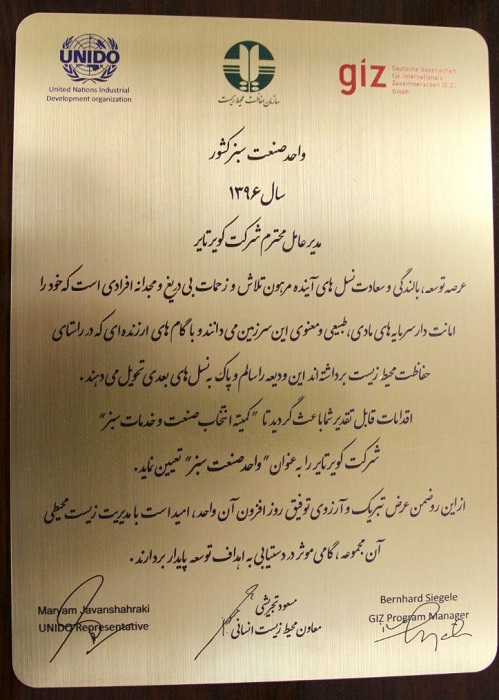 UNIDO
United Nations Industrial
Development organization
سازمان حفاظت محیط زیست
giz
Deutsche Gesellschaft
für Internationale
Zusammenarbeit (GIZ)
GmbH
واحد صنعت سبز کشور
سال ۱۳۹۶
مدیر عامل محترم شرکت کویر تایر
عرصه توسعه، بالندگی و سعادت نسل های آینده مرهون تلاش و زحمات بی دریغ و مجدانه افرادی است که خود را
امانت دار سرمایه های مادی، طبیعی و معنوی این سرزمین می دانند و با گام های ارزنده ای که در راستای
حفاظت محیط زیست برداشته اند این ودیعه را سالم و پاک به نسل های بعدی تحویل می دهند.
اقدامات قابل تقدیر شما باعث گردید تا "کمیته انتخاب صنعت و خدمات سبز"
شرکت کویر تایر را به عنوان "واحد صنعت سبز" تعیین نماید.
از این رو ضمن عرض تبریک و آرزوی توفیق روز افزون آن واحد، امید است با مدیریت زیست محیطی
آن مجموعه، گامی موثر در دستیابی به اهداف توسعه پایدار بردارند.
Maryam Javanshahraki
UNIDO Representative
مسعود تجریشی
معاون محیط زیست انسانی
Bernhard Siegele
GIZ Program Manager